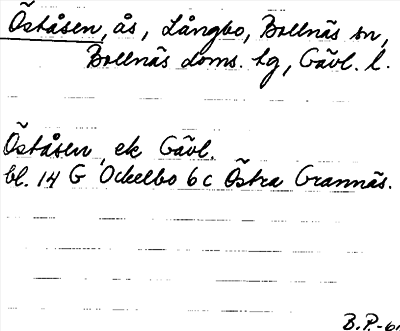 Öståsen, ås, Långbo, Bollnäs sn,
Bollnäs doms. hg, Gävl. l.
Öståsen, ek Gävl.
bl. 14 G Ockelbo 6c Östra Grannäs.
B.P.-6